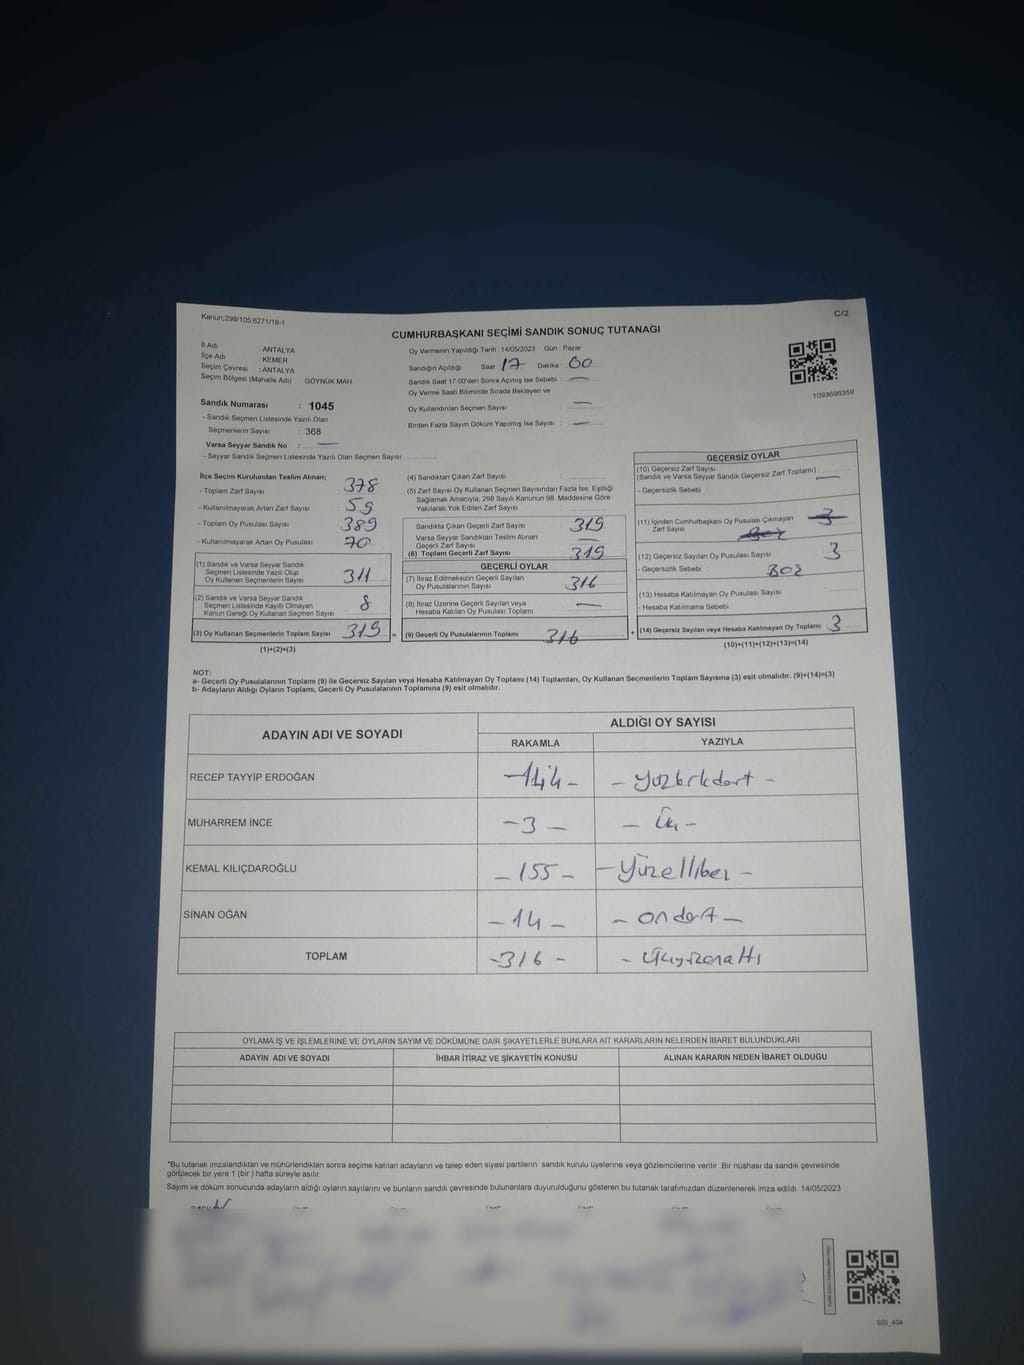 Kanun;298/105;6271/18-1
C/2
CUMHURBAŞKANI SEÇİMİ SANDIK SONUÇ TUTANAĞI
İl Adı : ANTALYA
İlçe Adı : KEMER
Seçim Çevresi : ANTALYA
Seçim Bölgesi (Mahalle Adı) : GÖYNÜK MAH.
Sandık Numarası : 1045
- Sandık Seçmen Listesinde Yazılı Olan
Seçmenlerin Sayısı : 368
Varsa Seyyar Sandık No : —
- Seyyar Sandık Seçmen Listesinde Yazılı Olan Seçmen Sayısı:
Oy Vermenin Yapıldığı Tarih : 14/05/2023 Gün : Pazar
Sandığın Açıldığı Saat 17 Dakika : 00
Sandık Saat 17:00'den Sonra Açılmış İse Sebebi : —
Oy Verme Saati Bitiminde Sırada Bekleyen ve
Oy Kullandırılan Seçmen Sayısı : —
Birden Fazla Sayım Döküm Yapılmış İse Sayısı : —
1093698359
İlçe Seçim Kurulundan Teslim Alınan;
- Toplam Zarf Sayısı 378
- Kullanılmayarak Artan Zarf Sayısı 59
- Toplam Oy Pusulası Sayısı 389
- Kullanılmayarak Artan Oy Pusulası 70
(1) Sandık ve Varsa Seyyar Sandık
Seçmen Listesinde Yazılı Olup
Oy Kullanan Seçmenlerin Sayısı 311
(2) Sandık ve Varsa Seyyar Sandık
Seçmen Listesinde Kayıtlı Olmayan
Kanun Gereği Oy Kullanan Seçmen Sayısı 8
(3) Oy Kullanan Seçmenlerin Toplam Sayısı 319 =
(1)+(2)=(3)
(4) Sandıktan Çıkan Zarf Sayısı
(5) Zarf Sayısı Oy Kullanan Seçmen Sayısından Fazla İse, Eşitliği
Sağlamak Amacıyla; 298 Sayılı Kanunun 98. Maddesine Göre
Yakılarak Yok Edilen Zarf Sayısı
Sandıkta Çıkan Geçerli Zarf Sayısı 319
Varsa Seyyar Sandıktan Teslim Alınan
Geçerli Zarf Sayısı —
(6) Toplam Geçerli Zarf Sayısı 319
GEÇERLİ OYLAR
(7) İtiraz Edilmeksizin Geçerli Sayılan
Oy Pusulalarının Sayısı 316
(8) İtiraz Üzerine Geçerli Sayılan veya
Hesaba Katılan Oy Pusulası Toplamı —
(9) Geçerli Oy Pusulalarının Toplamı 316 +
GEÇERSİZ OYLAR
(10) Geçersiz Zarf Sayısı
(Sandık ve Varsa Seyyar Sandık Geçersiz Zarf Toplamı) —
- Geçersizlik Sebebi
(11) İçinden Cumhurbaşkanı Oy Pusulası Çıkmayan
Zarf Sayısı 3
Boz
(12) Geçersiz Sayılan Oy Pusulası Sayısı 3
- Geçersizlik Sebebi : BOZ
(13) Hesaba Katılmayan Oy Pusulası Sayısı
- Hesaba Katılmama Sebebi
(14) Geçersiz Sayılan veya Hesaba Katılmayan Oy Toplamı 3
(10)+(11)+(12)+(13)=(14)
NOT:
a- Geçerli Oy Pusulalarının Toplamı (9) ile Geçersiz Sayılan veya Hesaba Katılmayan Oy Toplamı (14) Toplamları, Oy Kullanan Seçmenlerin Toplam Sayısına (3) eşit olmalıdır. (9)+(14)=(3)
b- Adayların Aldığı Oyların Toplamı, Geçerli Oy Pusulalarının Toplamına (9) eşit olmalıdır.
ADAYIN ADI VE SOYADI ALDIĞI OY SAYISI
RAKAMLA YAZIYLA
RECEP TAYYİP ERDOĞAN
MUHARREM İNCE - 3 -
KEMAL KILIÇDAROĞLU - 155 -
SİNAN OĞAN - 14 - - ondört -
TOPLAM - 316 - - Üçyüzonaltı
OYLAMA İŞ VE İŞLEMLERİNE VE OYLARIN SAYIM VE DÖKÜMÜNE DAİR ŞİKAYETLERLE BUNLARA AİT KARARLARIN NELERDEN İBARET BULUNDUKLARI
ADAYIN ADI VE SOYADI İHBAR İTİRAZ VE ŞİKAYETİN KONUSU ALINAN KARARIN NEDEN İBARET OLDUĞU
*Bu tutanak imzalandıktan ve mühürlendikten sonra seçime katılan adayların ve talep eden siyasi partilerin sandık kurulu üyelerine veya gözlemcilerine verilir. Bir nüshası da sandık çevresinde
görülecek bir yere 1 (bir) hafta süreyle asılır.
Sayım ve döküm sonucunda adayların aldığı oyların sayılarını ve bunların sandık çevresinde bulunanlara duyurulduğunu gösteren bu tutanak tarafımızdan düzenlenerek imza edildi. 14/05/2023